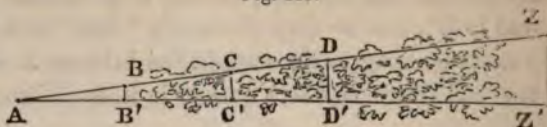 Z
D
C
B
A B' C' D' Z'